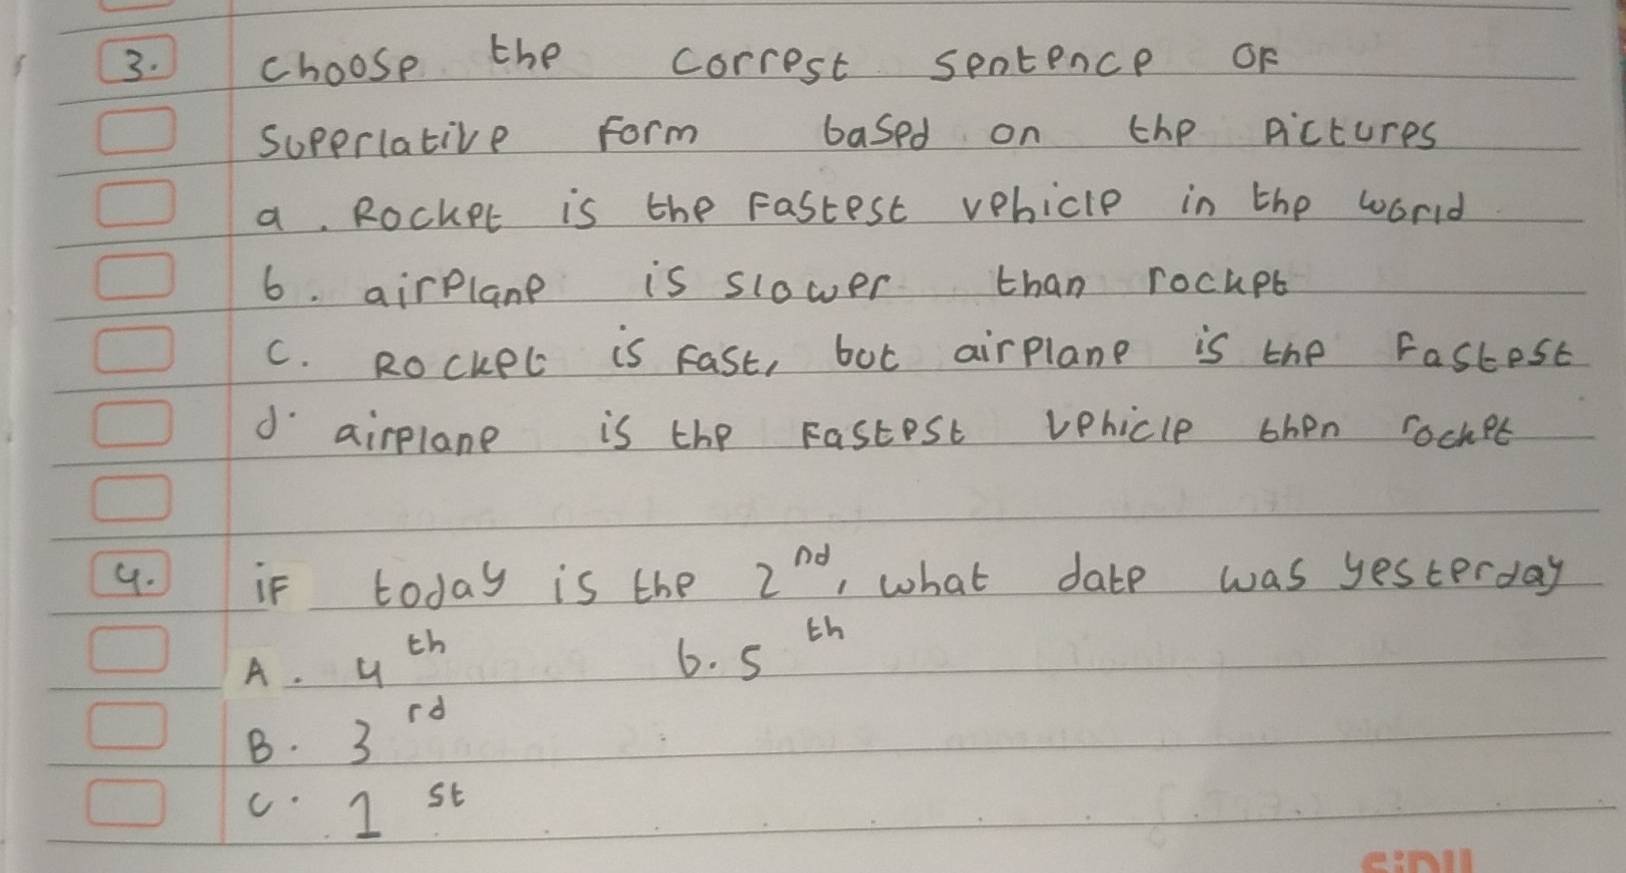 3. choose the correst sentence of
superlative form based on the pictures
a. Rocket is the fastest vehicle in the world
b. airplane is slower than rocket
c. Rocket is fast, but airplane is the fastest
d. airplane is the fastest vehicle then rocket
4. if today is the 2nd, what date was yesterday
A. 4th b. 5th
B. 3rd
C. 1st
SiDU